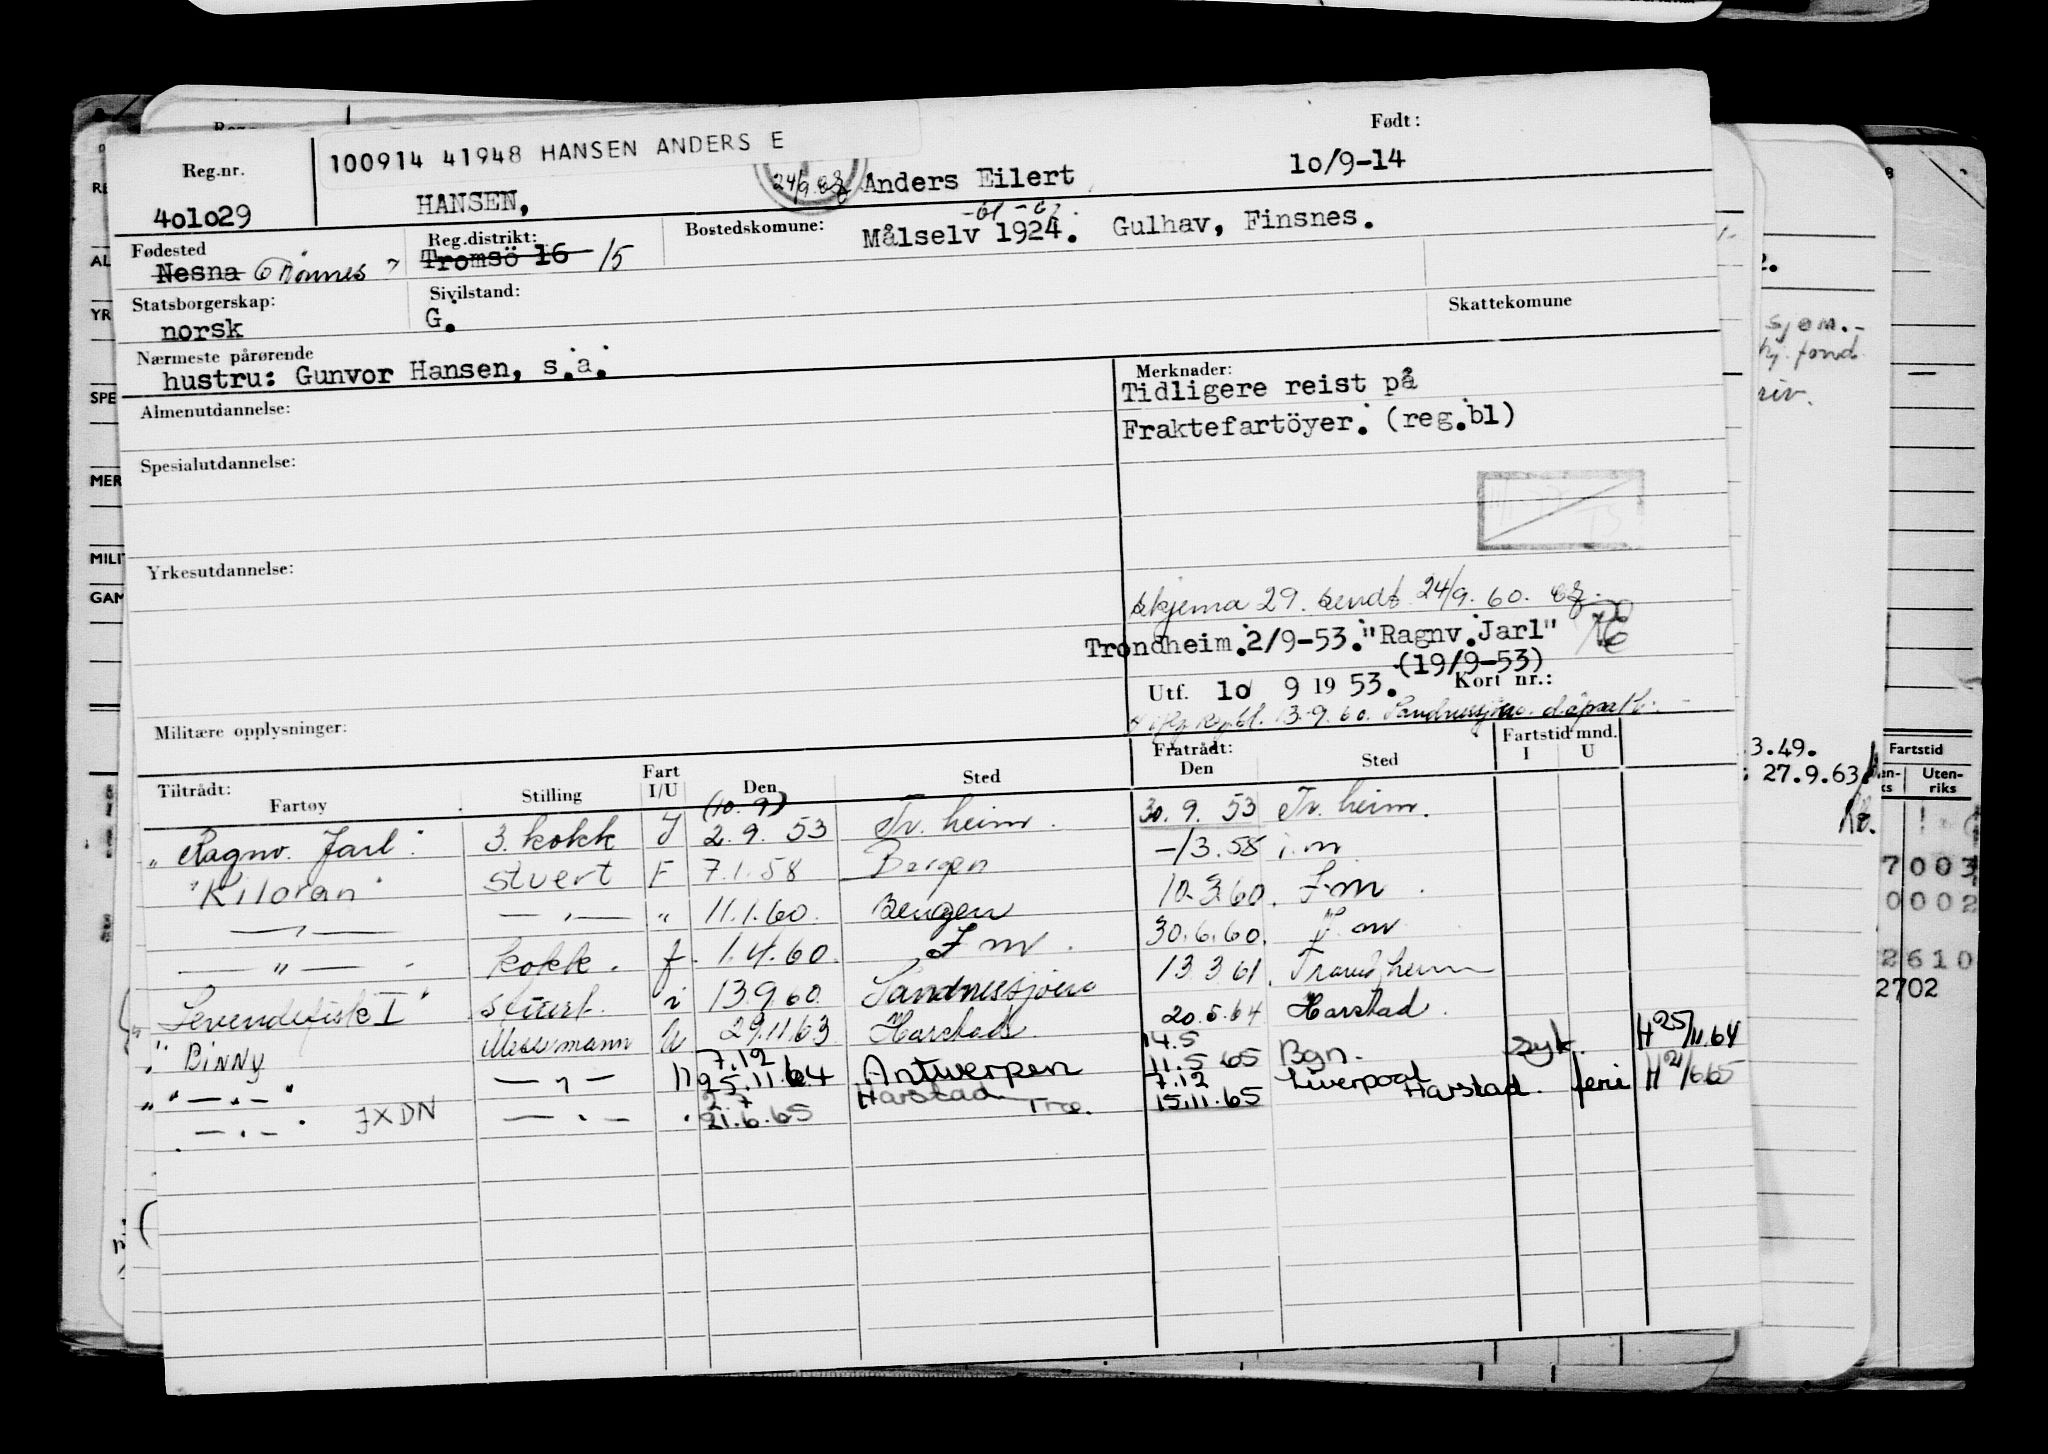 100914 41948 HANSEN ANDERS E
Født:
Reg.nr.
24/9.63
Anders Eilert
10/9-14
401029
HANSEN,
-61 -62.
Fødested
Reg.distrikt:
Bostedskomune:
Målselv 1924. Gulhav, Finsnes.
Nesna Dønnes
Tromsö 16 15
Statsborgerskap:
Sivilstand:
Skattekomune
norsk
G.
Nærmeste pårørende
hustru: Gunvor Hansen, s.a.
Merknader:
Tidligere reist på
Almenutdannelse:
Fraktefartöyer. (reg.bl)
Spesialutdannelse:
Yrkesutdannelse:
skjema 29. sendt 24/9.60.
Trondheim.2/9-53."Ragnv.Jarl"
(19/9-53)
Utf. 10 9 1953. Kort nr.:
Militære opplysninger:
13.9.60. Sandnessjøen
Fratrådt:
Fartstid mnd.
Tiltrådt:
Fartøy
Stilling
Fart
I/U
Den
Sted
Den
Sted
I
U
(10.9)
"Ragnv. Jarl" 3. kokk I 2.9.53 Tr.heim. 30.9.53 Tr.heim.
"Kiloran" stuert F 7.1.58 Bergen -/3.58 i.m
— " — — " — " 11.1.60. Bergen 10.3.60. I.m.
— " — kokk. f. 1.4.60. I m. 30.6.60. I. m
"Levendefisk I" stuert. i 13.9.60. Sandnessjøen 13.3.61. Trondheim
"Binny Messmann U 29.11.63 Harstad. 20.5.64 Harstad.
7.12 14.5
" — " — " — " — " 25.11.64 Antwerpen 11.5.65 Bgn. syk. H 25/11.64
2.7 7.12 Liverpool
— " — " JXDN — " — " 21.6.65 Harstad 15.11.65 Harstad. ferie H 21/6.65
3.49.
27.9.63
Fartstid
Uten-
riks
7003
0002
2610
2702
sjøm.-
fond.
RE
AL
YR
SPE
MER
MILI
GAM